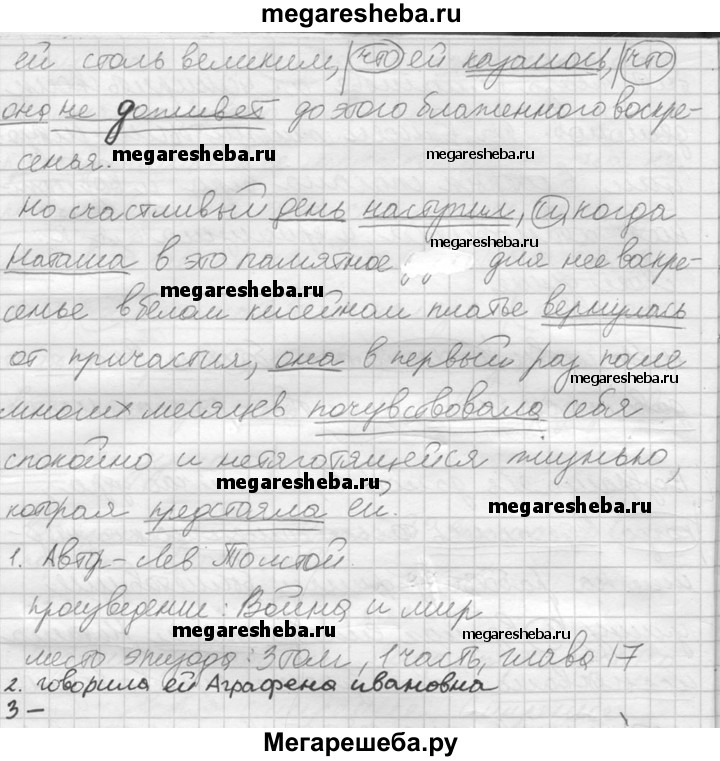 megaresheba.ru
ей столь великим, что ей казалось, что
она не доживет до этого блаженного воскре-
сенья.
megaresheba.ru
megaresheba.ru
Но счастливый день наступил, и, когда
megaresheba.ru
Наташа в это памятное для нее воскре-
megaresheba.ru
сенье в белом кисейном платье вернулась
от причастия, она в первый раз после
megaresheba.ru
многих месяцев почувствовала себя
спокойно и нетяготящейся жизнью,
megaresheba.ru
megaresheba.ru
которая предстояла ей.
1. Автор - Лев Толстой.
произведение: Война и мир
megaresheba.ru
megaresheba.ru
место эпизода: 3 том, 1 часть, глава 17
2. говорила ей Аграфена ивановна
3 –
Мегарешеба.ру